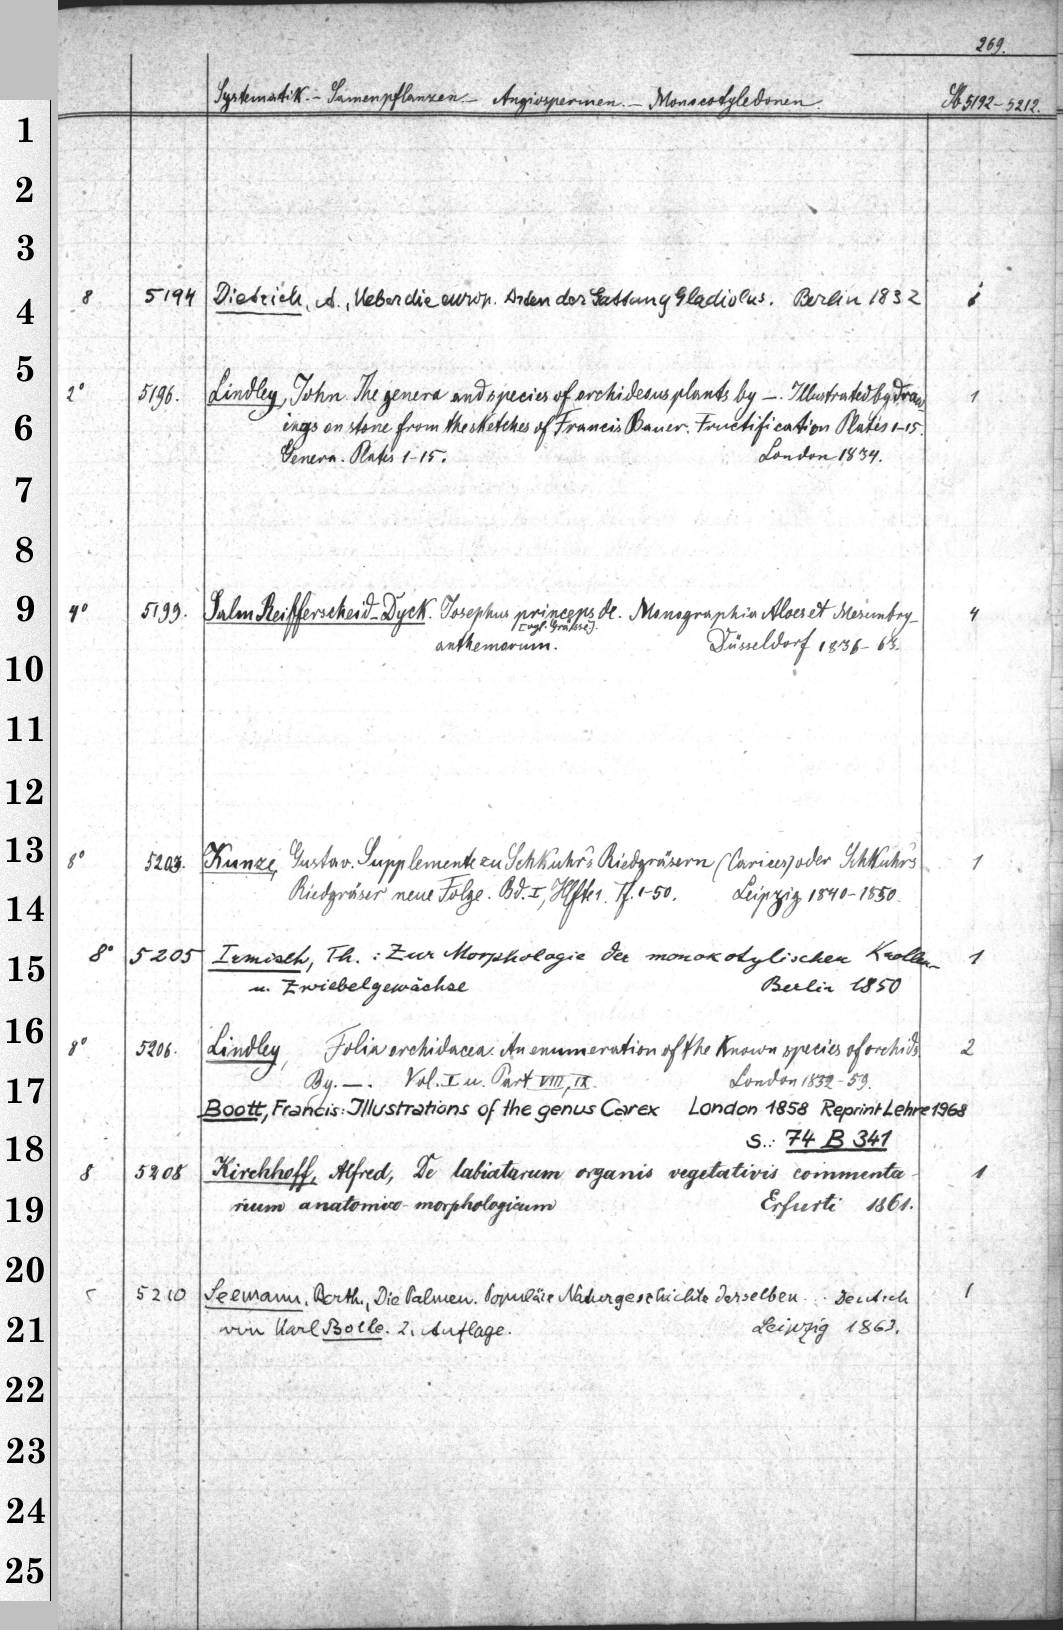 269.
Systematik. – Samenpflanzen. – Angiospermen. – Monocotyledonen. Sb 5192–5212.
1
2
3
8 5194 Dietrich, A., Ueber die europ. Arten der Gattung Gladiolus. Berlin 1832
4
5
2° 5196. Lindley, John. The genera and species of orchideous plants by –. Illustrated by draw- 1
6 ings on stone from the sketches of Francis Bauer. Fructification Plates 1–15.
Genera. Plates 1–15. London 1834.
7
8
9 4° 5199. Salm Reifferscheid-Dyck. Josephus princeps de. Monographia Aloes et Mesembry- 4
[vgl. Grösse].
anthemorum. Düsseldorf 1836–63.
10
11
12
13 8° 5203. Kunze, Gustav. Supplemente zu Schkuhr's Riedgräsern (Carices) oder Schkuhr's 1
Riedgräser neue Folge. Bd. I, Hlfte 1. Tf. 1–50. Leipzig 1840–1850.
14
8° 5205 Irmisch, Th. : Zur Morphologie der monokotylischen Knollen- 1
15
u. Zwiebelgewächse Berlin 1850
16
8° 5206. Lindley, Folia orchidacea. An enumeration of the known species of orchids. 2
By. –. Vol. I u. Part VIII, IX. London 1832–59.
17
Boott, Francis: Illustrations of the genus Carex London 1858 Reprint Lehre 1968
s.: 74 B 341
18
8 5208 Kirchhoff, Alfred, De labiatarum organis vegetativis commenta- 1
19 rium anatomico-morphologicum Erfurti 1861.
20
5210 Seemann, Berth., Die Palmen. Populäre Naturgeschichte derselben. . . Deutsch 1
21 von Karl Bolle. 2. Auflage. Leipzig 1863.
22
23
24
25